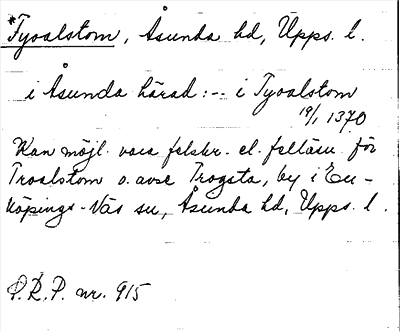 *Tyoalstom, Åsunda hd, Upps. l.
i Åsunda härad: -- i Tyoalstom
19/1 1370
Kan möjl. vara felskr. el. felläsn. för
Troalstom o. avse Trogsta, by i En-
köpings-Näs sn, Åsunda hd, Upps. l.
P.R.P. nr. 915